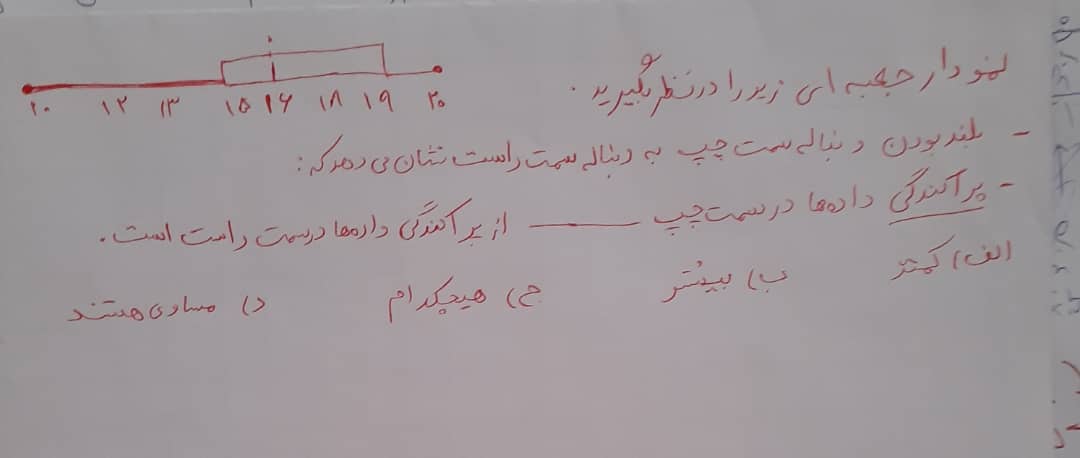 نمودار جعبه ای زیر را در نظر بگیرید.
۱۰ ۱۲ ۱۳ ۱۵ ۱۶ ۱۸ ۱۹ ۲۰
- بلند بودن دنباله سمت چپ به دنباله سمت راست نشان می دهد که:
- پراکندگی داده‌ها در سمت چپ ــــــــ از پراکندگی داده‌ها در سمت راست است.
الف) کمتر ب) بیشتر ج) هیچکدام د) مساوی هستند